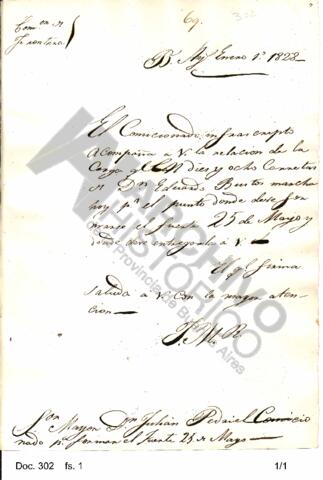 69.
302
Com.on de
Frontera
B.s Ay.s Enero 1.o 1828
El Comicionado infrascripto
acompaña a V. la relacion de la
Carga q.e dies y ocho Carretas
de Dn Eduardo Bustos marcha
hoy p.a el punto donde deve for
marse el fuerte 25 de Mayo y
donde deve entregarla a V.
El q.e firma
saluda a V. con la mayor aten
cion
J. M. R.
Sor Mayor Dn Julian Perdriel Comicio
nado p.a formar el fuerte 25 de Mayo
ARCHIVO
HISTORICO
Provincia de Buenos Aires
Doc. 302 fs. 1
1/1